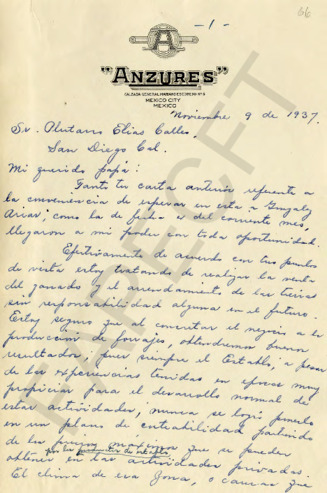 66
-1-
A
"ANZURES"
CALZADA GENERAL MARIANO ESCOBEDO Nº 6
MEXICO CITY
MEXICO
Noviembre 9 de 1937.
Sr. Plutarco Elías Calles.
San Diego Cal.
Mi querido papá:
Tanto tu carta anterior referente a
la conveniencia de esperar en esta a Gonzalez
Arias; como la de fecha 2 del corriente mes,
llegaron a mi poder con toda oportunidad.
Efectivamente de acuerdo con tus puntos
de vista estoy tratando de realizar la venta
del ganado y el arrendamiento de las tierras
sin responsabilidad alguna en el futuro.
Estoy seguro que al concretar el negocio a la
producción de forrajes, obtendremos buenos
resultados; pues siempre el Establo, a pesar
de las experiencias tenidas en épocas muy
propicias para el desarrollo normal de
estas actividades, nunca se logró ponerlo
en un plano de costeabilidad partiendo
de los precios que se pueden
obtener en las actividades privadas.
El clima de esa zona, o causas que
PROYECTO FAPECFT